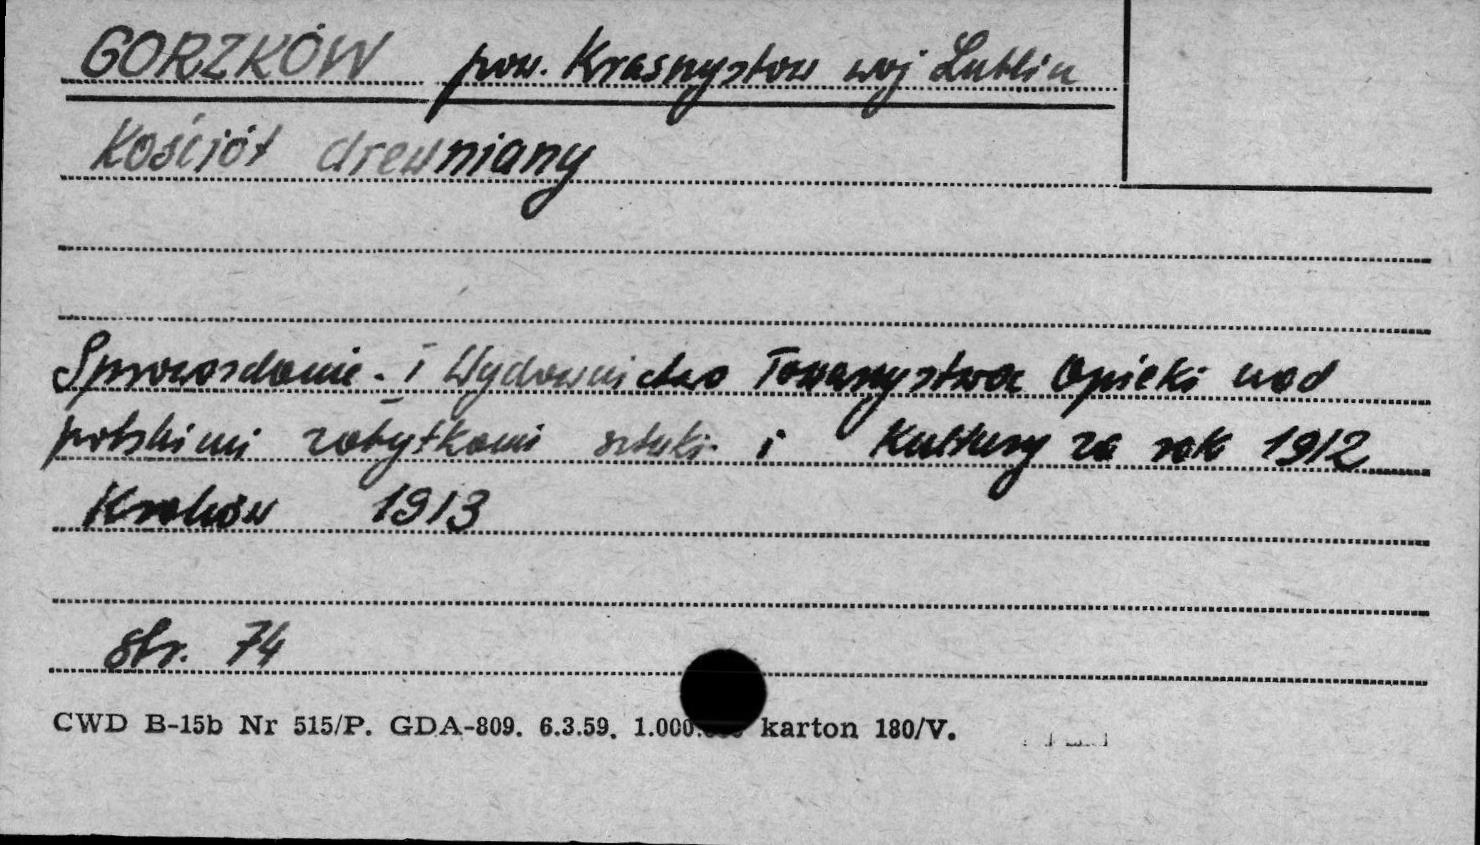 GORZKÓW pow. Krasnystaw woj Lublin
Kościół drewniany
Sprawozdanie i Wydawnictwo Towarzystwa Opieki nad
polskimi zabytkami sztuki i Kultury za rok 1912
Kraków 1913
str. 74
CWD B-15b Nr 515/P. GDA-809. 6.3.59. 1.000.000 karton 180/V.